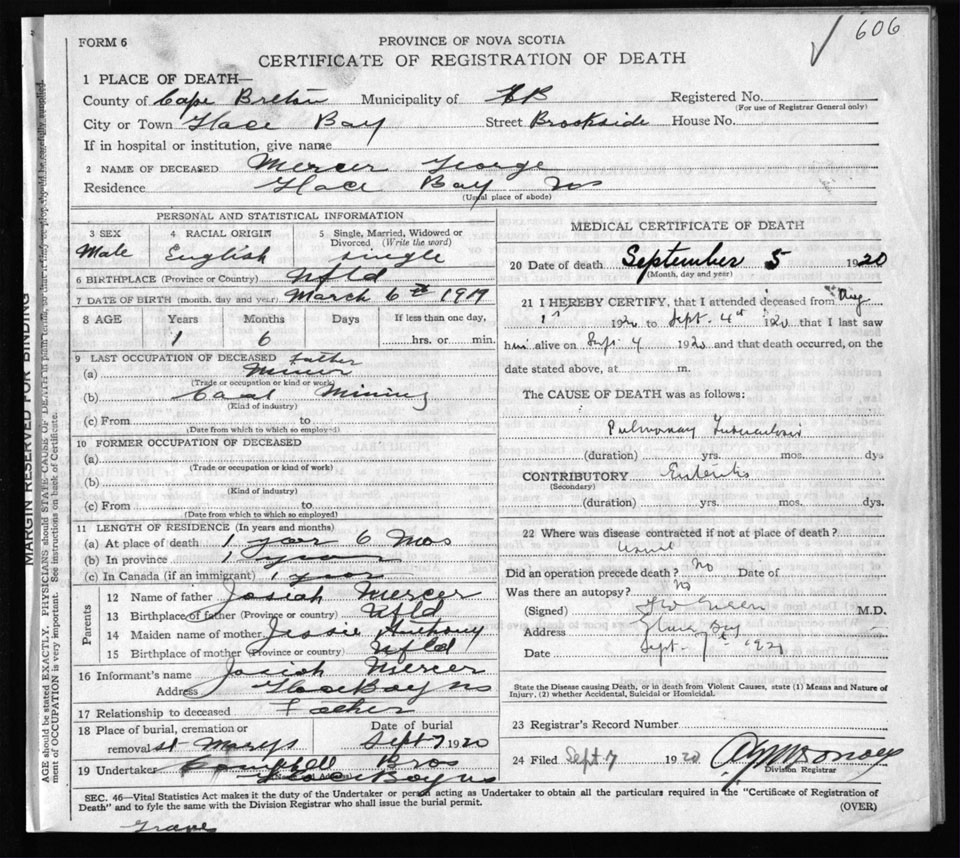 606
FORM 6
PROVINCE OF NOVA SCOTIA
CERTIFICATE OF REGISTRATION OF DEATH
1 PLACE OF DEATH—
County of Cape Breton Municipality of CB Registered No.
(For use of Registrar General only)
City or Town Glace Bay Street Brookside House No.
If in hospital or institution, give name
2 NAME OF DECEASED Mercer George
Residence Glace Bay NS
(Usual place of abode)
PERSONAL AND STATISTICAL INFORMATION
3 SEX 4 RACIAL ORIGIN 5 Single, Married, Widowed or Divorced (Write the word)
Male English Single
6 BIRTHPLACE (Province or Country) Nfld
7 DATE OF BIRTH (month, day and year) March 6th 1919
8 AGE Years Months Days If less than one day,
1 6 hrs. or min.
9 LAST OCCUPATION OF DECEASED father
(a) Miner
(Trade or occupation or kind or work)
(b) Coal Mining
(Kind of industry)
(c) From to
(Date from which to which so employed)
10 FORMER OCCUPATION OF DECEASED
(a)
(Trade or occupation or kind of work)
(b)
(Kind of industry)
(c) From to
(Date from which to which so employed)
11 LENGTH OF RESIDENCE (In years and months)
(a) At place of death 1 year 6 Mos
(b) In province 1 year
(c) In Canada (if an immigrant) 1 year
Parents
12 Name of father Josiah Mercer
13 Birthplace of father (Province or country) Nfld
14 Maiden name of mother Jessie Anthony
15 Birthplace of mother (Province or country) Nfld
16 Informant's name Josiah Mercer
Address Glace Bay NS
17 Relationship to deceased Father
18 Place of burial, cremation or Date of burial
removal St Marys Sept 7 1920
19 Undertaker Campbell Bros
Glace Bay NS
MEDICAL CERTIFICATE OF DEATH
20 Date of death September 5 1920
(Month, day and year)
21 I HEREBY CERTIFY, that I attended deceased from Aug
1st 1920 to Sept. 4th 1920 that I last saw
him alive on Sept. 4 1920 and that death occurred, on the
date stated above, at m.
The CAUSE OF DEATH was as follows:
Pulmonary Tuberculosis
(duration) yrs. mos. dys
CONTRIBUTORY Enteritis
(Secondary)
(duration) yrs. mos. dys.
22 Where was disease contracted if not at place of death?
Did an operation precede death? No Date of
Was there an autopsy? No
(Signed) M.D.
Address Glace Bay
Date Sept. 7th 1920
State the Disease causing Death, or in death from Violent Causes, state (1) Means and Nature of
Injury, (2) whether Accidental, Suicidal or Homicidal.
23 Registrar's Record Number
24 Filed Sept 7 1920
Division Registrar
SEC. 46—Vital Statistics Act makes it the duty of the Undertaker or person acting as Undertaker to obtain all the particulars required in the "Certificate of Registration of
Death" and to fyle the same with the Division Registrar who shall issue the burial permit. (OVER)
MARGIN RESERVED FOR BINDING
AGE should be stated EXACTLY. PHYSICIANS should STATE CAUSE OF DEATH in plain terms, so that it may be properly
ment of OCCUPATION is very important. See instructions on back of Certificate.